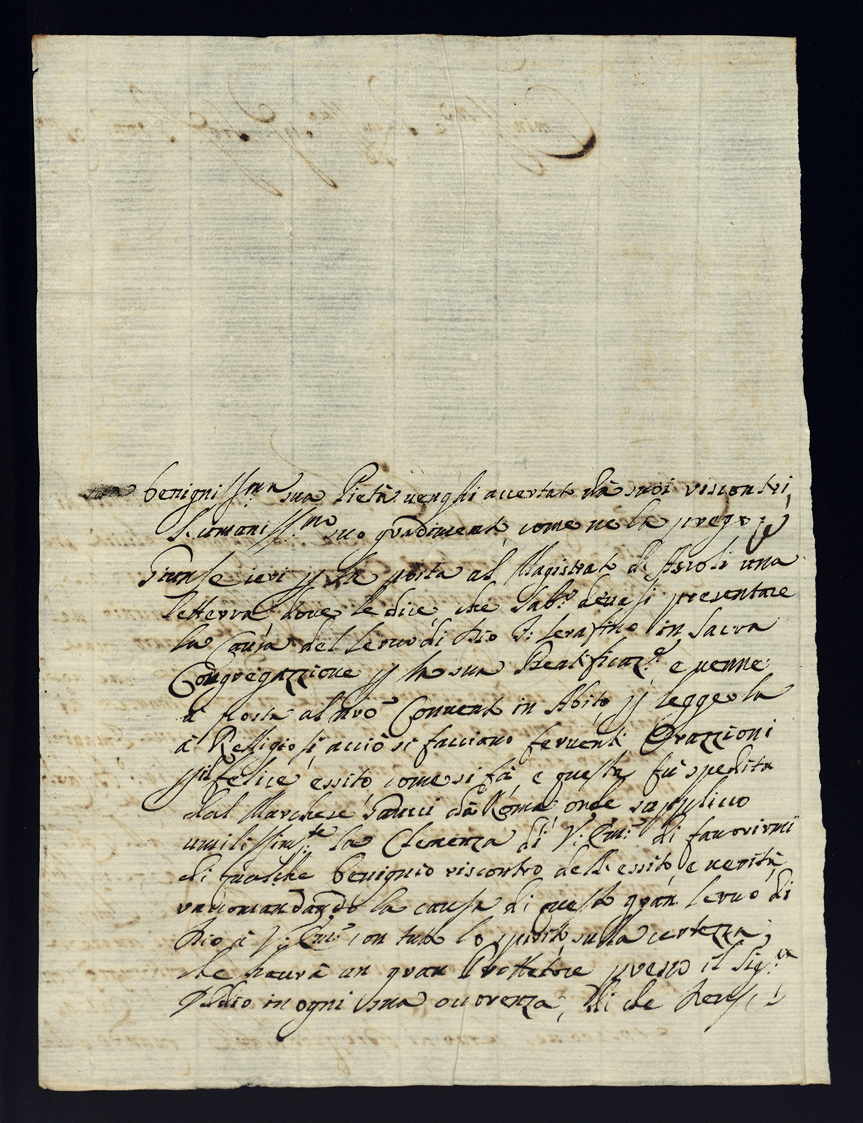 benigniss.ma sua Pietà venghi accertato dà suoi riscontri
l'umaniss.mo suo gradimento come ne la prego
Giunse ieri p la posta al Magistrato di Ascoli una
lettera dove le dice che Sab.o devesi presentare
la Causa del Servo di Dio F. Serafino in Sacra
Congregazzione p la sua Beatificaz.e e venne
à posta al nro Convento in Abito p leggerla
à Relligiosi acciò si facciano ferventi Orazzioni
p il felice essito come si fà e questa fù spedita
dal Marchese dà Roma onde supplico
umilissim.te la Clemenza di V: Em.a di favorirmi
di qualche benignio riscontro dell'essito e verità
raccomandando la causa di questo gran Servo di
Dio à V: Em.a con tutto lo spirito sulla certezza,
che haverà un gran Prottettore presso il Sig.re
Iddio in ogni sua occorenza, di che